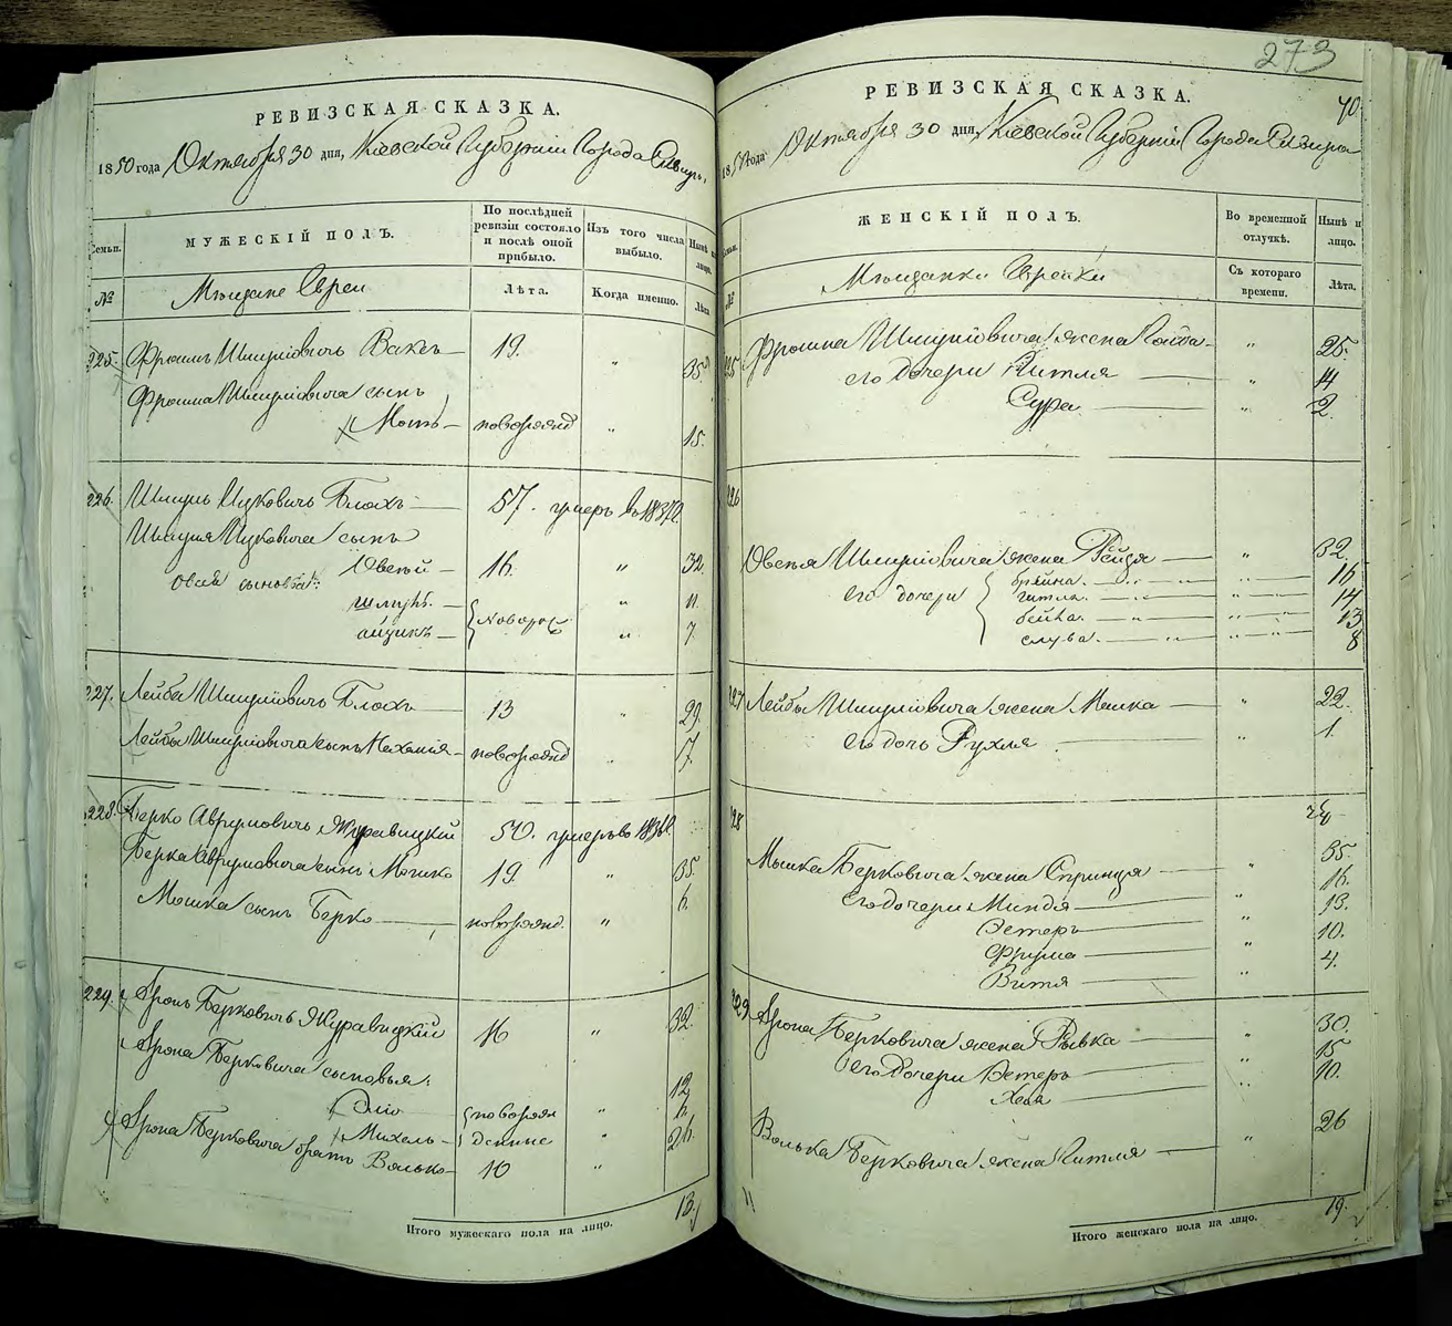 РЕВИЗСКАЯ СКАЗКА.
1850 года Октября 30 дня, Кіевской Губерніи Города Сквиры,
Семьи. МУЖЕСКІЙ ПОЛЪ. По послѣдней ревизіи состояло и послѣ оной прибыло. Изъ того числа выбыло. Нынѣ на лицо.
№ Мещане Евреи Лѣта. Когда именно. Лѣта
225. Фроимъ Шмуліовичъ Вакъ 19. " 35.
Фроима Шмуліовича сынъ
Мотъ новорожд " 15.
226. Шмуль Ицковичъ Блохъ 57. умеръ въ 1837 г.
Шмуля Ицковича сынъ
Овсѣй 16. " 32.
Овсія сыновья:
шмуль. новорож " 11.
айзикъ " 7.
227. Лейба Шмуліовичъ Блохъ 13 " 29.
Лейбы Шмуліовича сынъ Нехемія новорожд " 7
228. Берко Аврумовичъ Журавицкій 50. умеръ въ
Берка Аврумовича сынъ Мошко 19. " 35.
Мошка сынъ Берко новорожд. " 6.
229. Аронъ Берковичъ Журавицкій 16 " 32.
Арона Берковича сыновья:
Эліо новорож " 12
Михель денные " 6.
Арона Берковича братъ Волько 10 " 26.
Итого мужескаго пола на лицо. 13.
273
РЕВИЗСКАЯ СКАЗКА. 70.
1850 года Октября 30 дня, Кіевской Губерніи Города Сквира
Семьи. ЖЕНСКІЙ ПОЛЪ. Во временной отлучкѣ. Нынѣ на лицо.
№ Мещанки Еврейки Съ котораго времени. Лѣта.
225 Фроима Шмуліовича жена Голда " 25.
его дочери Гитля " 14
Сура " 2.
226
Овсѣя Шмуліовича жена Рейзя " 32.
его дочери брайна. " 16
гитля. " 14
бейла. " 13
слува. " 8
227 Лейбы Шмуліовича жена Малка " 22.
его дочь Рухля " 1.
228
Мошка Берковича жена Спринця " 35.
его дочери Миндя " 16.
Эстеръ " 13.
Фрума " 10.
Витя " 4.
229 Арона Берковича жена Рывка " 30.
его дочери Эстеръ " 15
Хая " 10.
Волька Берковича жена Гитля " 26
Итого женскаго пола на лицо. 19.